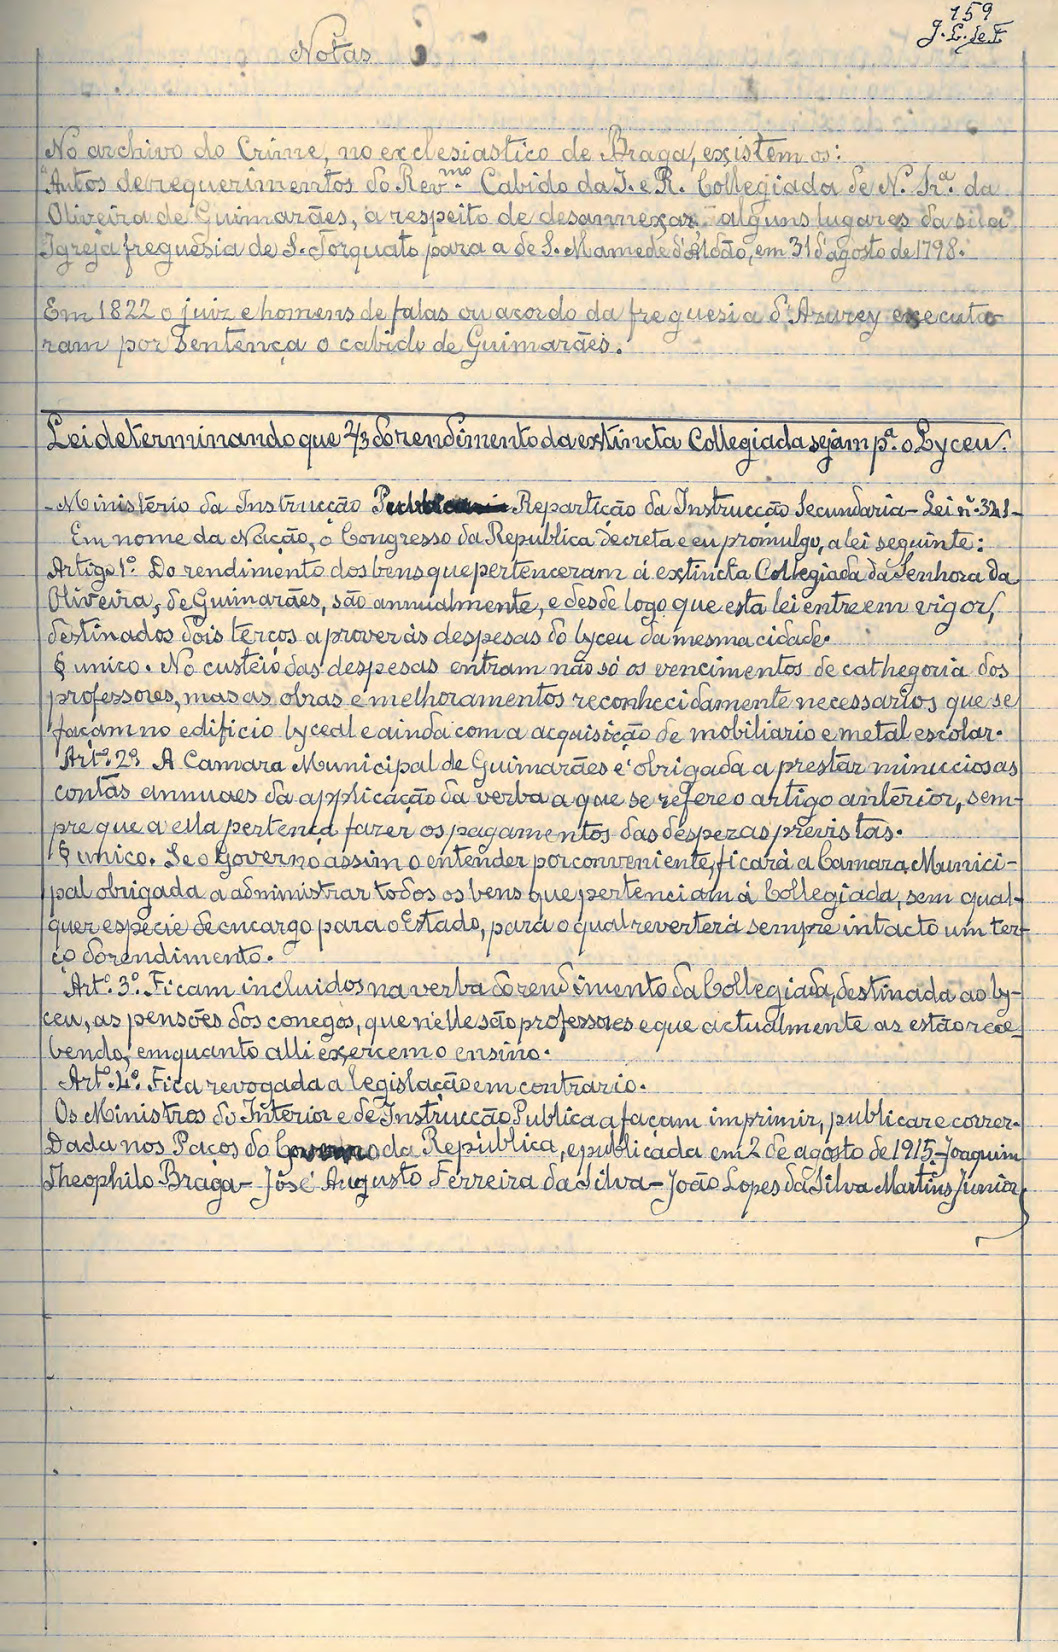 159
J. L. de F.
Notas
No archivo do Crime, no ecclesiastico de Braga, existem os:
"Autos de requerimentos do Revmo. Cabido da I. e R. Collegiada de N. Sra. da
Oliveira de Guimarães, a respeito de desannexar alguns lugares da sua
Igreja freguesia de S. Torquato para a de S. Mamede d'Aldão, em 31 d'agosto de 1798.
Em 1822 o juiz e homens de falas ou acordo da freguesia d'Azurey executa-
ram por sentença o cabido de Guimarães.
Lei determinando que 2/3 do rendimento da extincta Collegiada sejam pa. o Lyceu.
- Ministério da Instrucção Repartição da Instrucção Secundaria - Lei nº 321 -
Em nome da Nação, o Congresso da Republica decreta e eu promulgo, a lei seguinte:
Artigo 1º. Do rendimento dos bens que pertenceram á extincta Collegiada da Senhora da
Oliveira, de Guimarães, são annualmente, e desde logo que esta lei entre em vigor,
destinados dois terços a prover ás despesas do lyceu da mesma cidade.
§ unico. No custeio das despesas entram não só os vencimentos de cathegoria dos
professores, mas as obras e melhoramentos reconhecidamente necessarios que se
façam no edificio lyceal e ainda com a acquisição de mobiliario e metal escolar.
Artº. 2º. A Camara Municipal de Guimarães é obrigada a prestar minucciosas
contas annuaes da applicação da verba a que se refere o artigo antérior, sem-
pre que a ella pertença fazer os pagamentos das despezas previstas.
§ unico. Se o Governo assim o entender por conveniente, ficará a Camara Munici-
pal obrigada a administrar todos os bens que pertenciam á Collegiada, sem qual-
quer espécie de encargo para o Estado, para o qual reverterá sempre intacto um ter-
ço do rendimento.
Artº. 3º. Ficam incluidos na verba do rendimento da Collegiada, destinada ao ly-
ceu, as pensões dos conegos, que n'elle são professores e que actualmente as estão rece-
bendo, emquanto alli exercem o ensino.
Artº. 4º. Fica revogada a legislação em contrario.
Os Ministros do Interior e de Instrucção Publica a façam imprimir, publicar e correr.
Dada nos Paços do Governo da República, e publicada em 2 de agosto de 1915 - Joaquim
Theophilo Braga - José Augusto Ferreira da Silva - João Lopes da Silva Martins Junior.